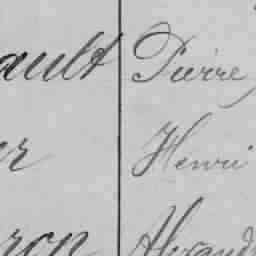 ault Pierre
er Henri
ron Alexand